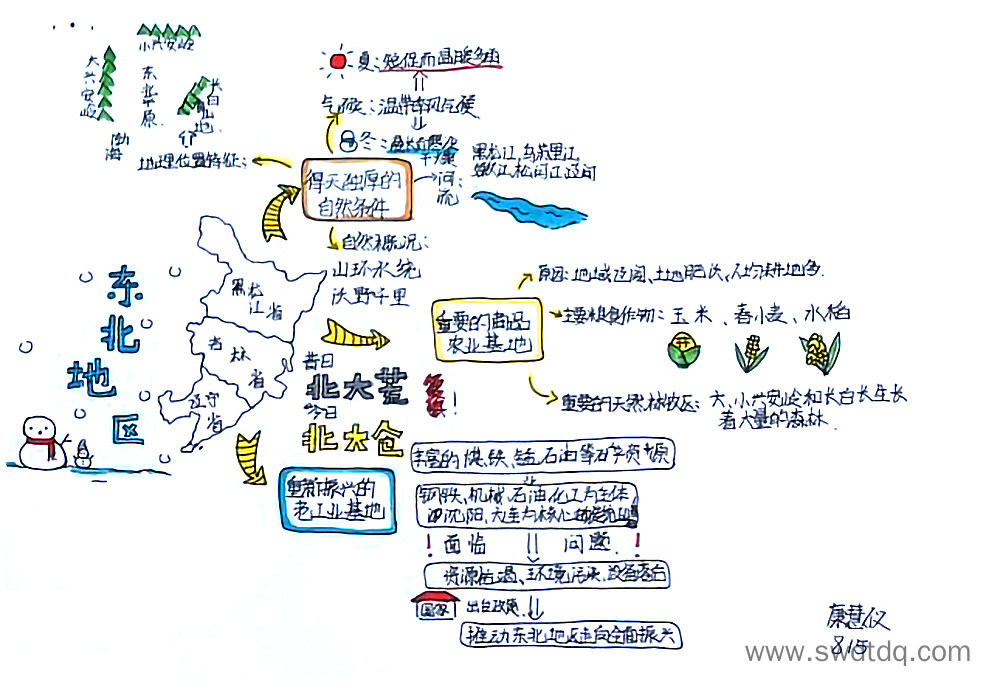 小兴安岭
大兴安岭
东北平原
长白山地
渤海
地理位置特征:
夏:短促而温暖多雨
气候:温带季风气候
冬:
得天独厚的
自然条件
河流:
黑龙江,乌苏里江
自然概况:
山环水绕
沃野千里
东北地区
黑龙江省
吉林省
辽宁省
昔日
北大荒
今日
北大仓
重要的商品
农业基地
原因:地域辽阔、土地肥沃、人均耕地多.
主要粮食作物:玉米、春小麦、水稻
重要的天然林牧区:大、小兴安岭和长白长生长
着大量的森林.
重新振兴的
老工业基地
丰富的煤、铁、锰、石油等矿产资源
钢铁、机械、石油、化工为主体
以沈阳、大连为核心
!面临 问题.!
资源枯竭、环境污染、设备老台
国家 出台政策.
推动东北地区走向全面振兴
康慧仪
815
www.swdtdq.com